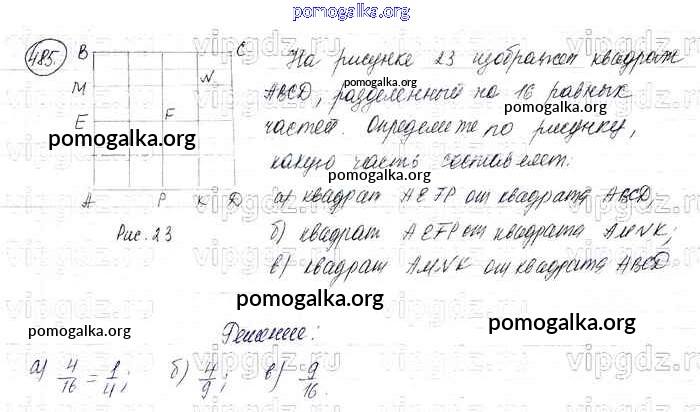 pomogalka.org
485.
B C
M N
E F
A P K D
Рис. 23
На рисунке 23 изображен квадрат
ABCD, разделенный на 16 равных
частей. Определите по рисунку,
какую часть составляет:
а) квадрат AEFP от квадрата ABCD;
б) квадрат AEFP от квадрата AMNK;
в) квадрат AMNK от квадрата ABCD
Решение:
а) 4/16 = 1/4; б) 4/9; в) 9/16.
pomogalka.org
pomogalka.org
pomogalka.org
pomogalka.org
pomogalka.org
pomogalka.org
pomogalka.org
vipgdz.ru